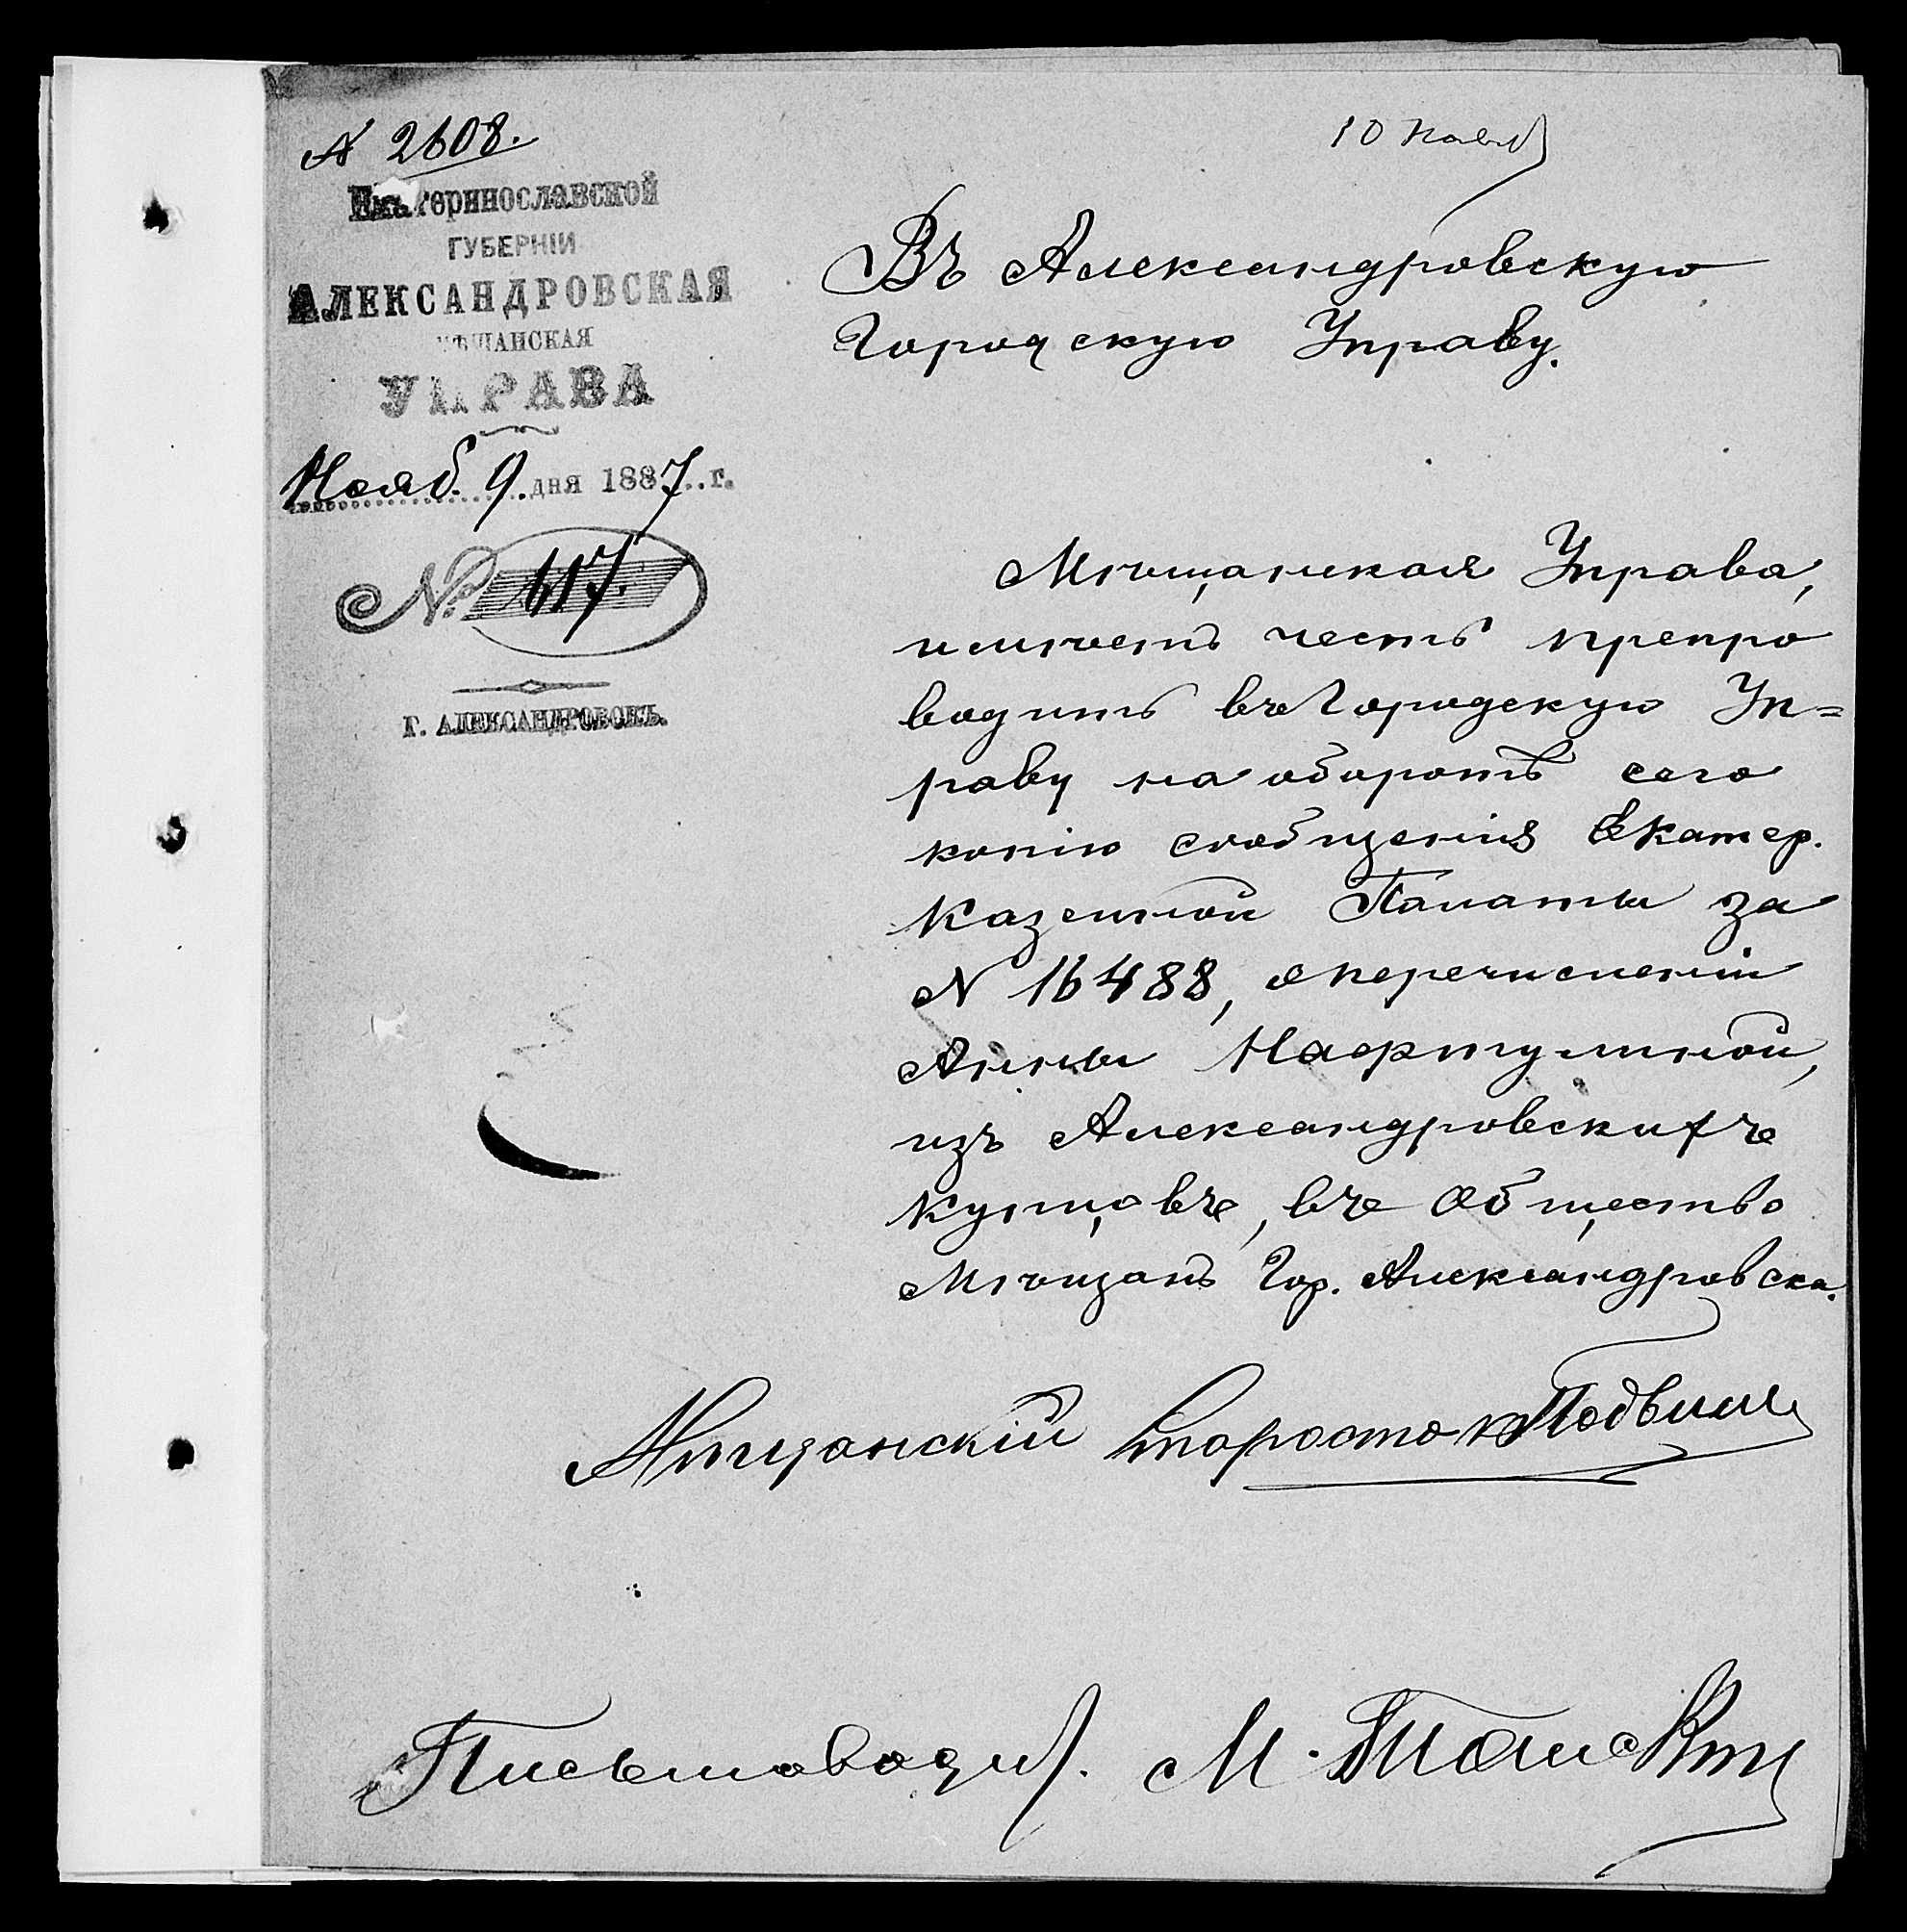 № 2608.
Екатеринославской
ГУБЕРНІИ
АЛЕКСАНДРОВСКАЯ
МѢЩАНСКАЯ
УПРАВА
Нояб. 9. дня 1887. г.
№ 617.
г. АЛЕКСАНДРОВСКЪ.
10 Нояб
Въ Александровскую
Городскую Управу.
Мѣщанская Управа,
имѣетъ честь препро
водить въ Городскую Уп=
раву на оборотѣ сего
копію сообщенія Екатер.
Казенной Палаты за
N 16488, о перечисленіи
Анны Нафтулиной,
изъ Александровскихъ
купцовъ, въ Общество
Мѣщанъ Гор. Александровска.
Мѣщанскій Староста
Письмоводит. М.